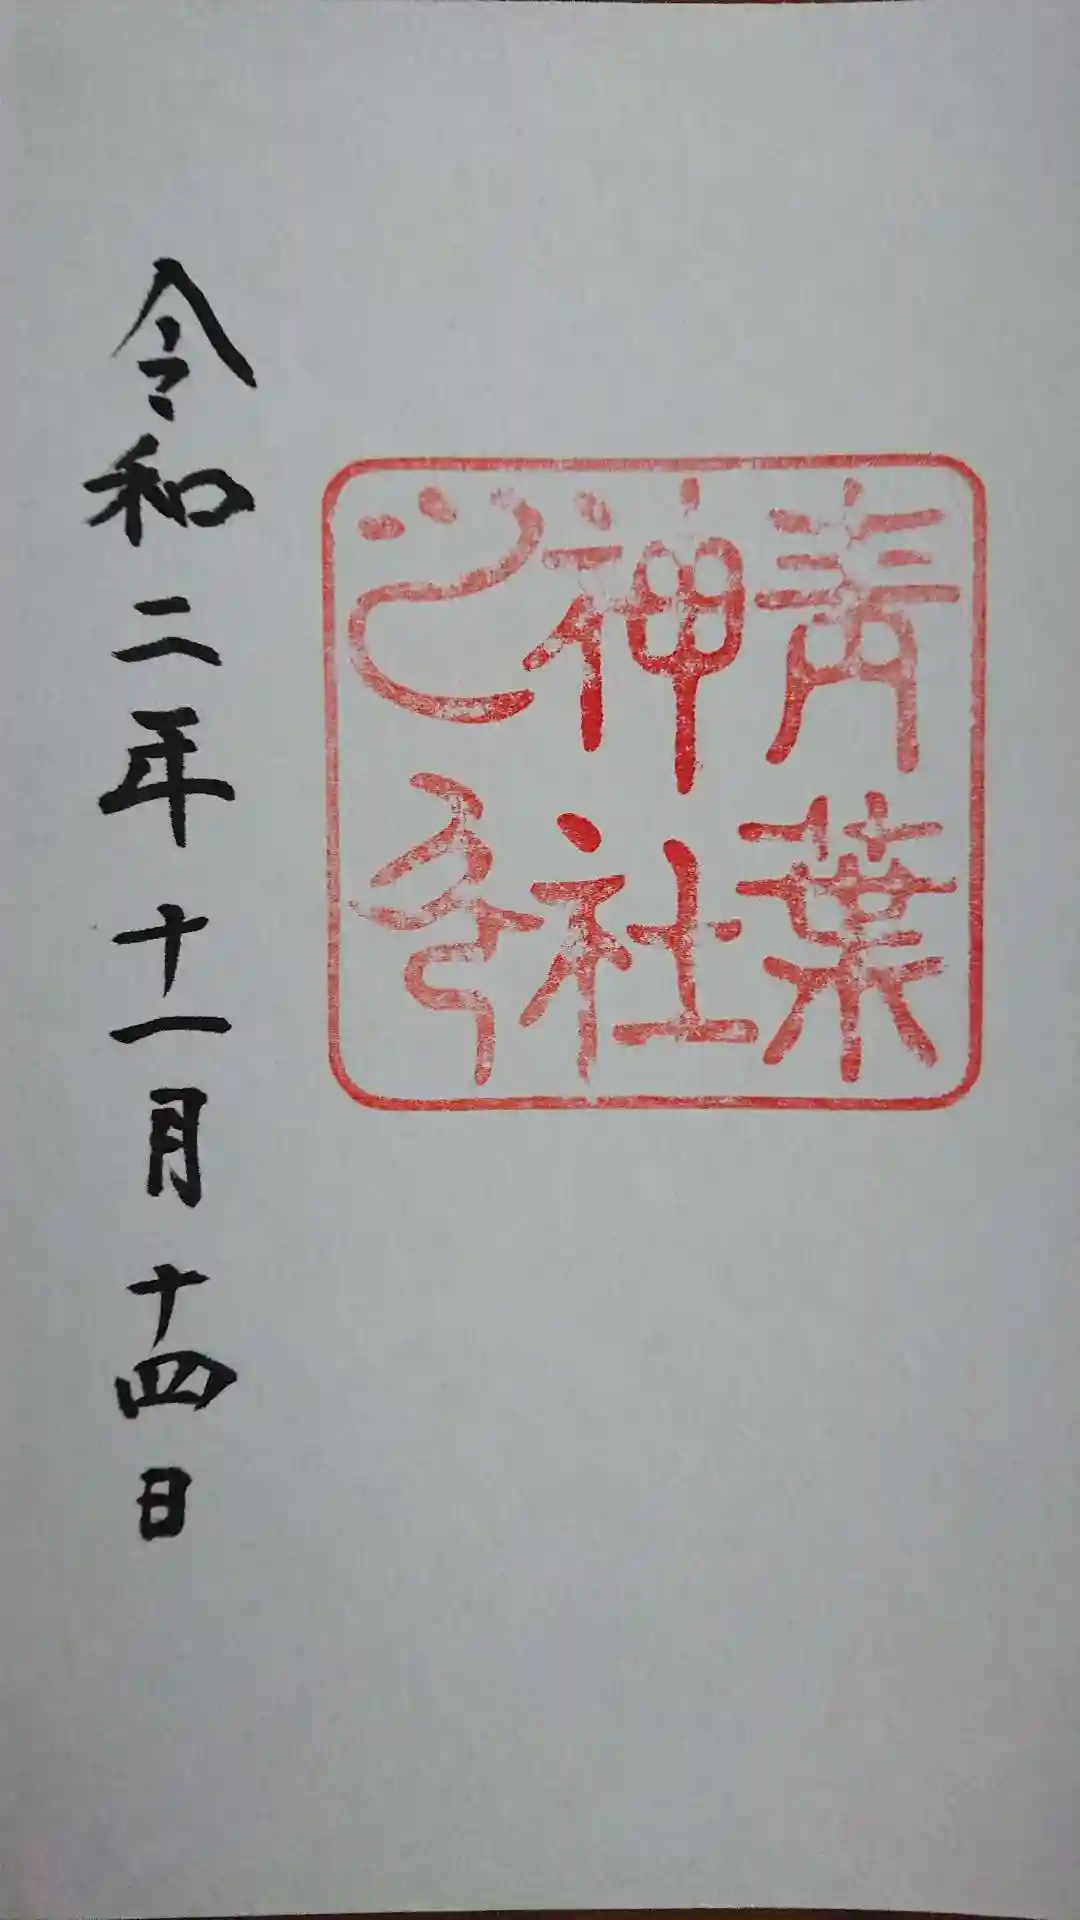 青葉
神社
之印
令和二年十一月十四日